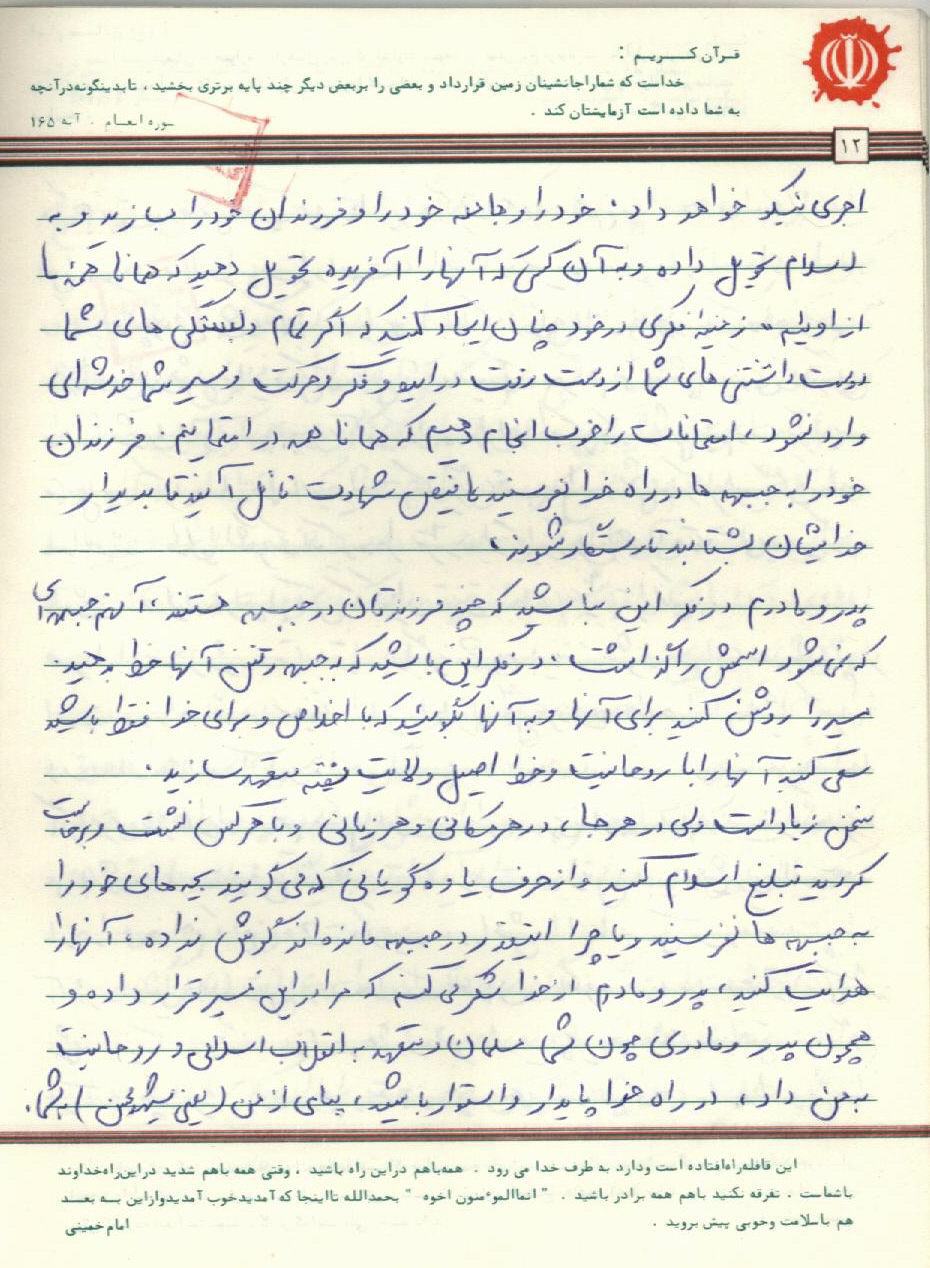 قرآن کریم :
خداست که شمارا جانشینان زمین قرارداد و بعضی را بربعض دیگر چند پایه برتری بخشید ، تابدینگونه درآنچه
به شما داده است آزمایشتان کند .
سوره انعام . آیه ۱۶۵
۱۲
اجری نیکو خواهد داد . خود را و جامعه خود را و فرزندان خود را بسازید و به
اسلام تحویل داده و به آن کسی که آنها را آفریده تحویل دهید که همانا همهٔ ما
از اوییم . زمینه فکری در خود چنان ایجاد کنید که اگر تمام دلبستگی های شما
دوست داشتنی های شما از دست رفت در ایده و فکر و حرکت و مسیر شما خدشه ای
وارد نشود ، امتحانات را خوب انجام دهیم که همانا همه در امتحانیم . فرزندان
خود را به جبهه ها در راه خدا بفرستید تا بفیض شهادت نائل آیند تا بدیدار
خدایشان بشتابند تا رستگار شوند .
پدر و مادرم در فکر این نباشید که چند فرزندتان در جبهه هستند ، آنهم جبهه ای
که نمی شود اسمش را گذاشت . در فکر این باشید که به جبهه رفتن آنها خط بدهید .
مسیر را روشن کنید برای آنها و به آنها بگوئید که با اخلاص و برای خدا فقط باشید
سعی کنید آنها را با روحانیت و خط اصیل ولایت فقیه متعهد سازید .
سخن زیاد است ولی در هر جا ، در هر مکانی و هر زمانی و با هر کس نشست و برخاست
کردید تبلیغ اسلام کنید و از حرف یاوه گویانی که می گویند بچه های خود را
به جبهه ها نفرستید و یا چرا اینقدر در جبهه مانده اند گوش نداده ، آنها را
هدایت کنید ، پدر و مادرم از خدا شکر می کنم که مرا در این مسیر قرار داده و
همچون پدر و مادری چون شما مسلمان و متعهد به انقلاب اسلامی و روحانیت
به من داد ، در راه خدا پایدار و استوار باشید ، پیامی از من ( یعنی شهید محسن ) به شما .
این قافله راه افتاده است و دارد به طرف خدا می رود . همه باهم دراین راه باشید ، وقتی همه باهم شدید دراین راه خداوند
باشماست . تفرقه نکنید باهم همه برادر باشید . " انما المومنون اخوه " بحمدالله تا اینجا که آمدید خوب آمدید و ازاین به بعد
هم باسلامت وخوبی پیش بروید .
امام خمینی